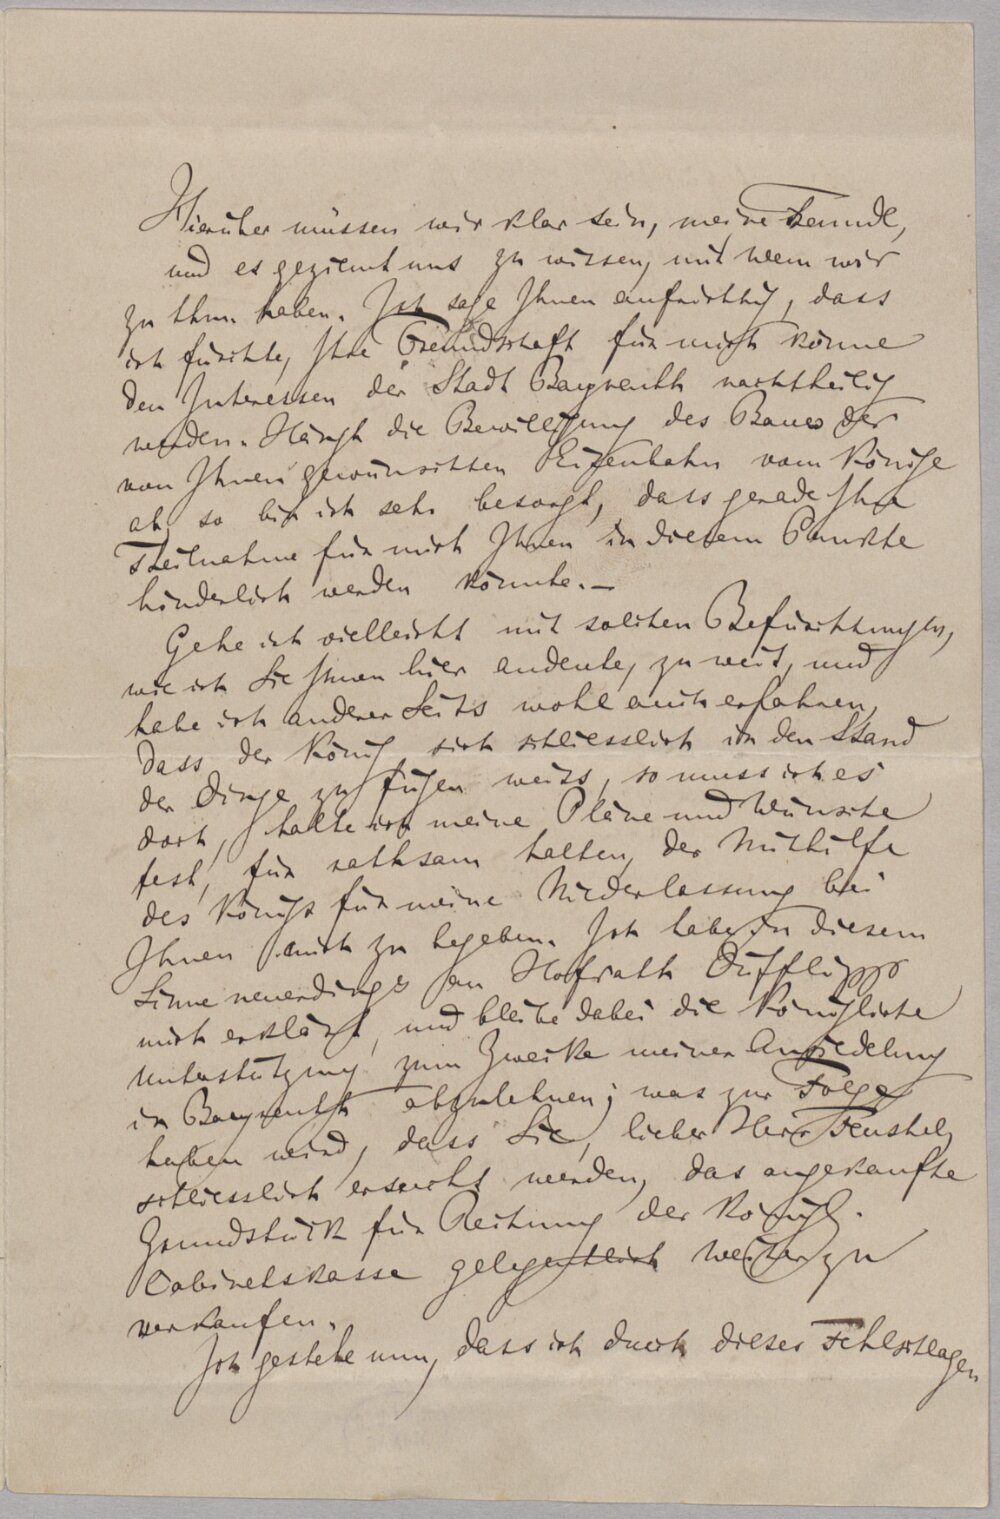 Hierüber müssen wir klar sein, meine Freunde,
und es geziemt uns zu wissen, mit wem wir
zu thun haben. Ich sage Ihnen aufrichtig, dass
ich fürchte, Ihre Freundschaft für mich könne
den Interessen der Stadt Bayreuth nachtheilig
werden. Hängt die Bewilligung des Baues der
von Ihnen gewünschten Eisenbahn vom Könige
ab, so bin ich sehr besorgt, dass gerade Ihre
Theilnahme für mich Ihnen in diesem Punkte
hinderlich werden könnte. —
Gehe ich vielleicht mit solchen Befürchtungen,
wie ich Sie Ihnen hier andeute, zu weit, und
habe ich anderer Seits wohl auch erfahren,
dass der König sich schliesslich in den Stand
der Dinge zu fügen weiss, so muss ich es
doch, halte ich meine Pläne und Wünsche
fest, für rathsam halten, der Mithilfe
des Königs für meine Niederlassung bei
Ihnen mich zu begeben. Ich habe in diesem
Sinne neuerdings an Hofrath Düfflipp
mich erklärt, und bleibe dabei die Königliche
Unterstützung zum Zwecke meiner Ansiedelung
in Bayreuth abzulehnen; was zur Folge
haben wird, dass Sie, lieber Herr Feustel,
schliesslich ersucht werden, das angekaufte
Grundstück für Rechnung der Königl.
Cabinetskasse gelegentlich weiter zu
verkaufen.
Ich gestehe nun, dass ich durch dieses Fehlschlagen